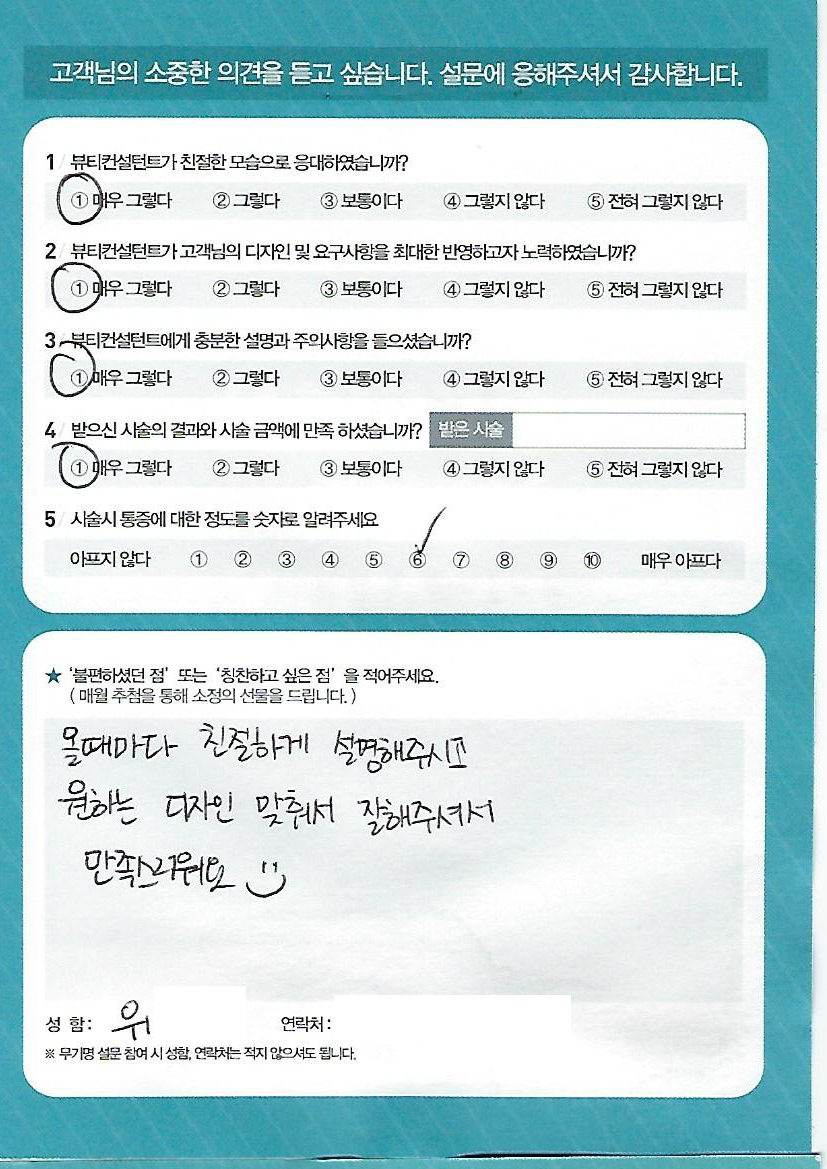 고객님의 소중한 의견을 듣고 싶습니다. 설문에 응해주셔서 감사합니다.
1 / 뷰티컨설턴트가 친절한 모습으로 응대하였습니까?
① 매우 그렇다 ② 그렇다 ③ 보통이다 ④ 그렇지 않다 ⑤ 전혀 그렇지 않다
2 / 뷰티컨설턴트가 고객님의 디자인 및 요구사항을 최대한 반영하고자 노력하였습니까?
① 매우 그렇다 ② 그렇다 ③ 보통이다 ④ 그렇지 않다 ⑤ 전혀 그렇지 않다
3 / 뷰티컨설턴트에게 충분한 설명과 주의사항을 들으셨습니까?
① 매우 그렇다 ② 그렇다 ③ 보통이다 ④ 그렇지 않다 ⑤ 전혀 그렇지 않다
4 / 받으신 시술의 결과와 시술 금액에 만족 하셨습니까? 받은 시술
① 매우 그렇다 ② 그렇다 ③ 보통이다 ④ 그렇지 않다 ⑤ 전혀 그렇지 않다
5 / 시술시 통증에 대한 정도를 숫자로 알려주세요
아프지 않다 ① ② ③ ④ ⑤ ⑥ ⑦ ⑧ ⑨ ⑩ 매우 아프다
★ '불편하셨던 점' 또는 '칭찬하고 싶은 점' 을 적어주세요.
( 매월 추첨을 통해 소정의 선물을 드립니다. )
올때마다 친절하게 설명해주시고
원하는 디자인 맞춰서 잘해주셔서
만족스러워요
성 함 : 위 연락처 :
※ 무기명 설문 참여 시 성함, 연락처는 적지 않으셔도 됩니다.